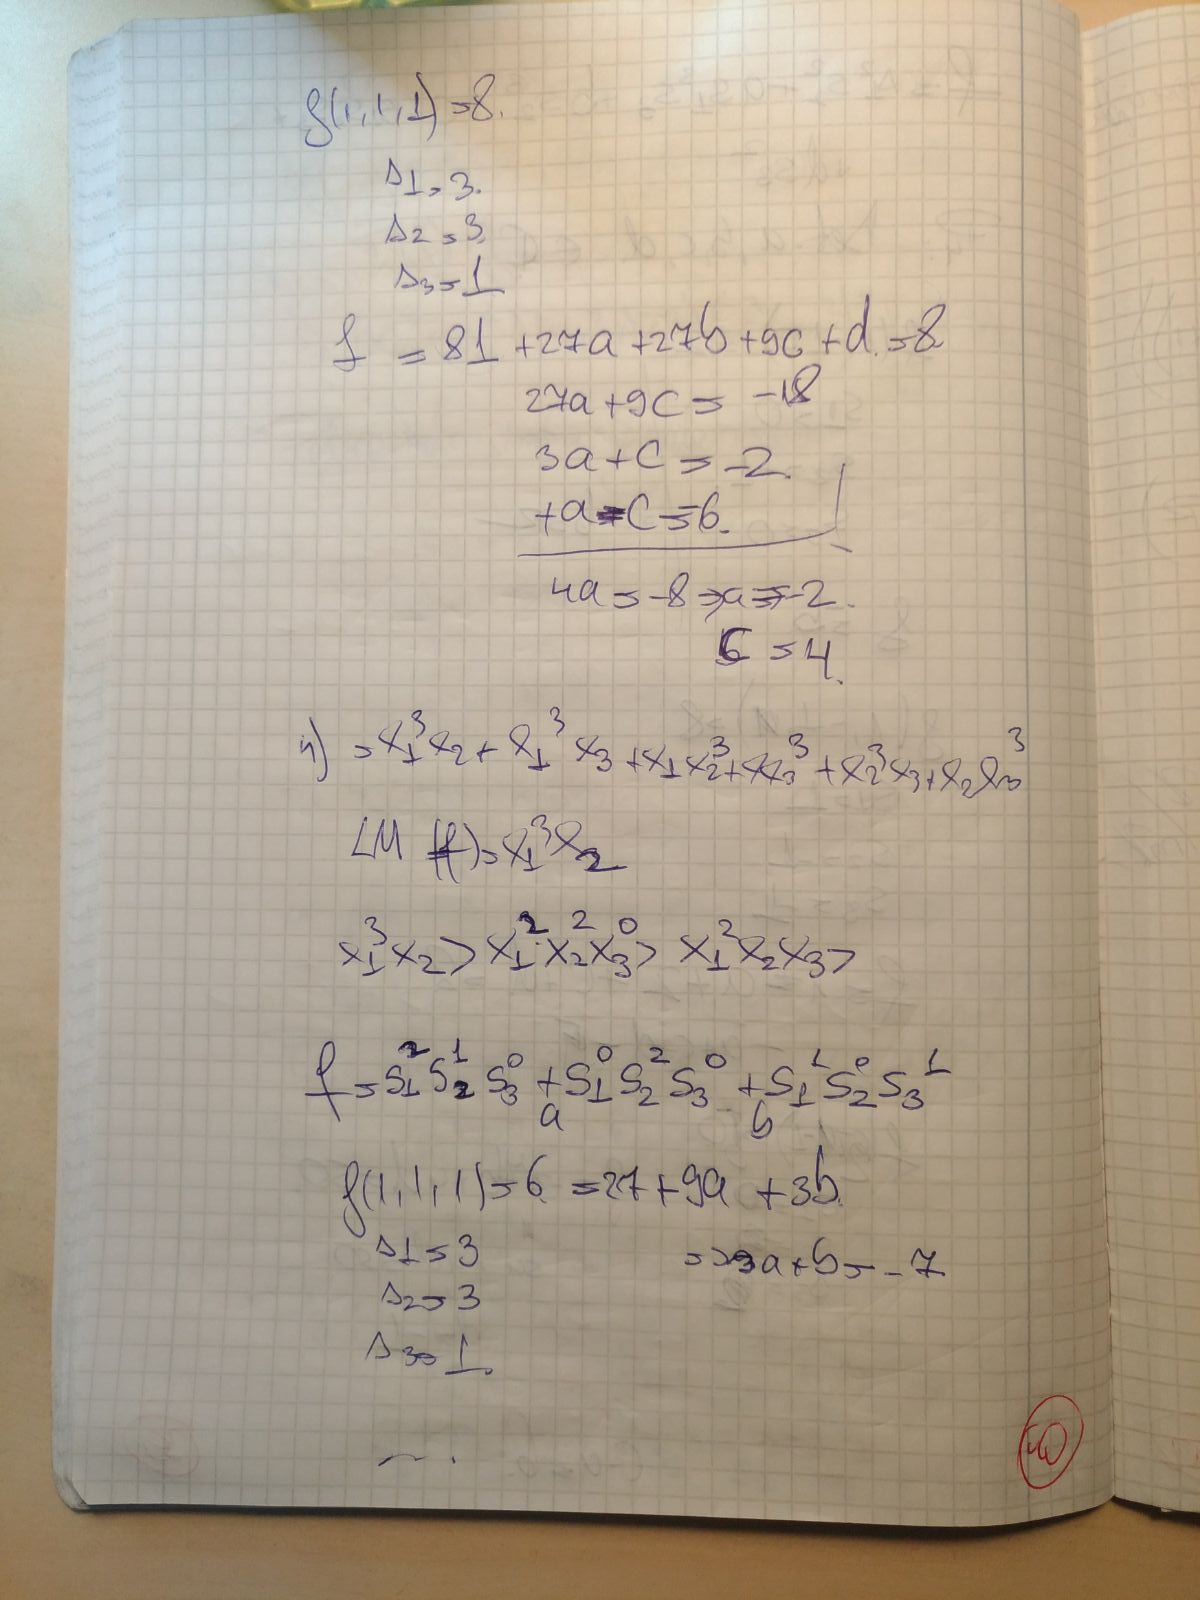 f(1,1,1)=8.
s1=3.
s2=3.
s3=1
f = 81+27a+27b+9c+d.=8
27a+9c=-18
3a+c=-2.
+a-c=-6.
4a=-8⇒a=-2.
c=4.
4) =x₁³x₂+x₁³x₃+x₁x₂³+x₁x₃³+x₂³x₃+x₂x₃³
LM(f)=x₁³x₂
x₁³x₂>x₁²x₂²x₃⁰>x₁²x₂x₃>
f=s₁²s₂¹s₃⁰+as₁⁰s₂²s₃⁰+bs₁¹s₂⁰s₃¹
f(1,1,1)=6=27+9a+3b.
s1=3 =>3a+b=-7
s2=3
s3=1.